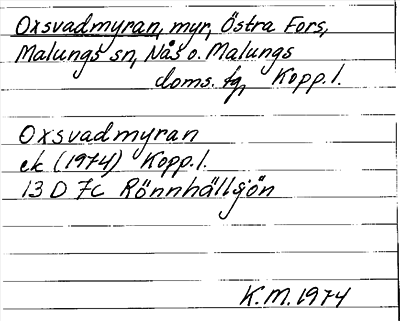 Oxsvadmyran, myr, Östra Fors,
Malungs sn, Nås o. Malungs
doms. tg, Kopp. l.
Oxsvadmyran
ek (1974) Kopp. l.
13 D 7c Rönnhällsjön
K.M. 1974